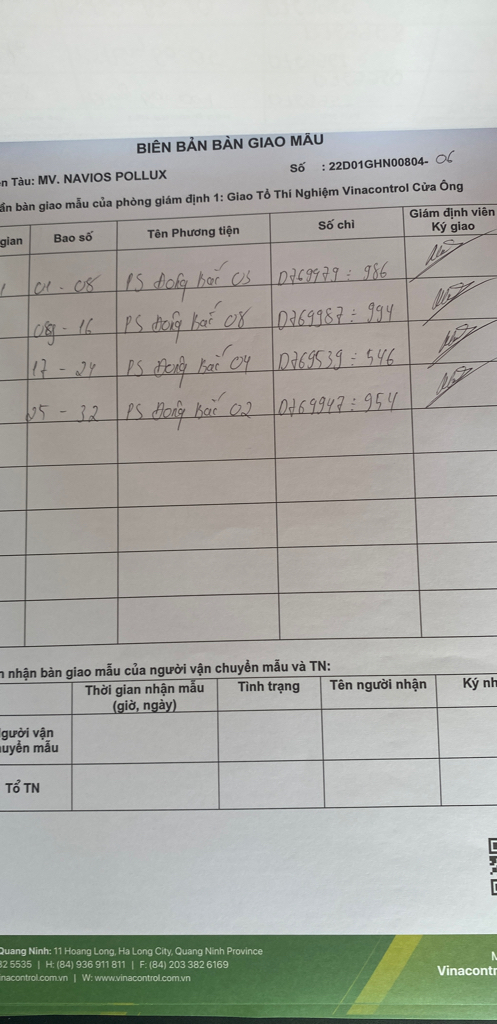 BIÊN BẢN BÀN GIAO MẪU
Số : 22D01GHN00804- 06
n Tàu: MV. NAVIOS POLLUX
ẩn bàn giao mẫu của phòng giám định 1: Giao Tổ Thí Nghiệm Vinacontrol Cửa Ông
gian Bao số Tên Phương tiện Số chì Giám định viên Ký giao
01 - 08 PS Đông Bắc 03 D769979 ÷ 986
09 - 16 PS Đông Bắc 08 D769987 ÷ 994
17 - 24 PS Đông Bắc 04 D769539 ÷ 546
25 - 32 PS Đông Bắc 02 D769947 ÷ 954
n nhận bàn giao mẫu của người vận chuyển mẫu và TN:
Thời gian nhận mẫu (giờ, ngày) Tình trạng Tên người nhận Ký nh
gười vận
uyển mẫu
Tổ TN
Quang Ninh: 11 Hoang Long, Ha Long City, Quang Ninh Province
32 5535 | H: (84) 936 911 811 | F: (84) 203 382 6169
nacontrol.com.vn | W: www.vinacontrol.com.vn
Vinacontr